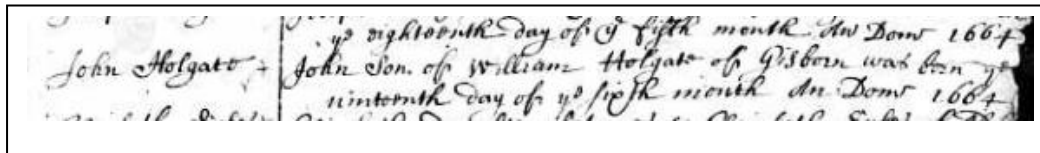 ye eighteenth day of ye fifth month An Dom 1664
John Holgate
John Son of William Holgate of Gisborn was born ye
ninteenth day of ye sixth month An Dom 1664